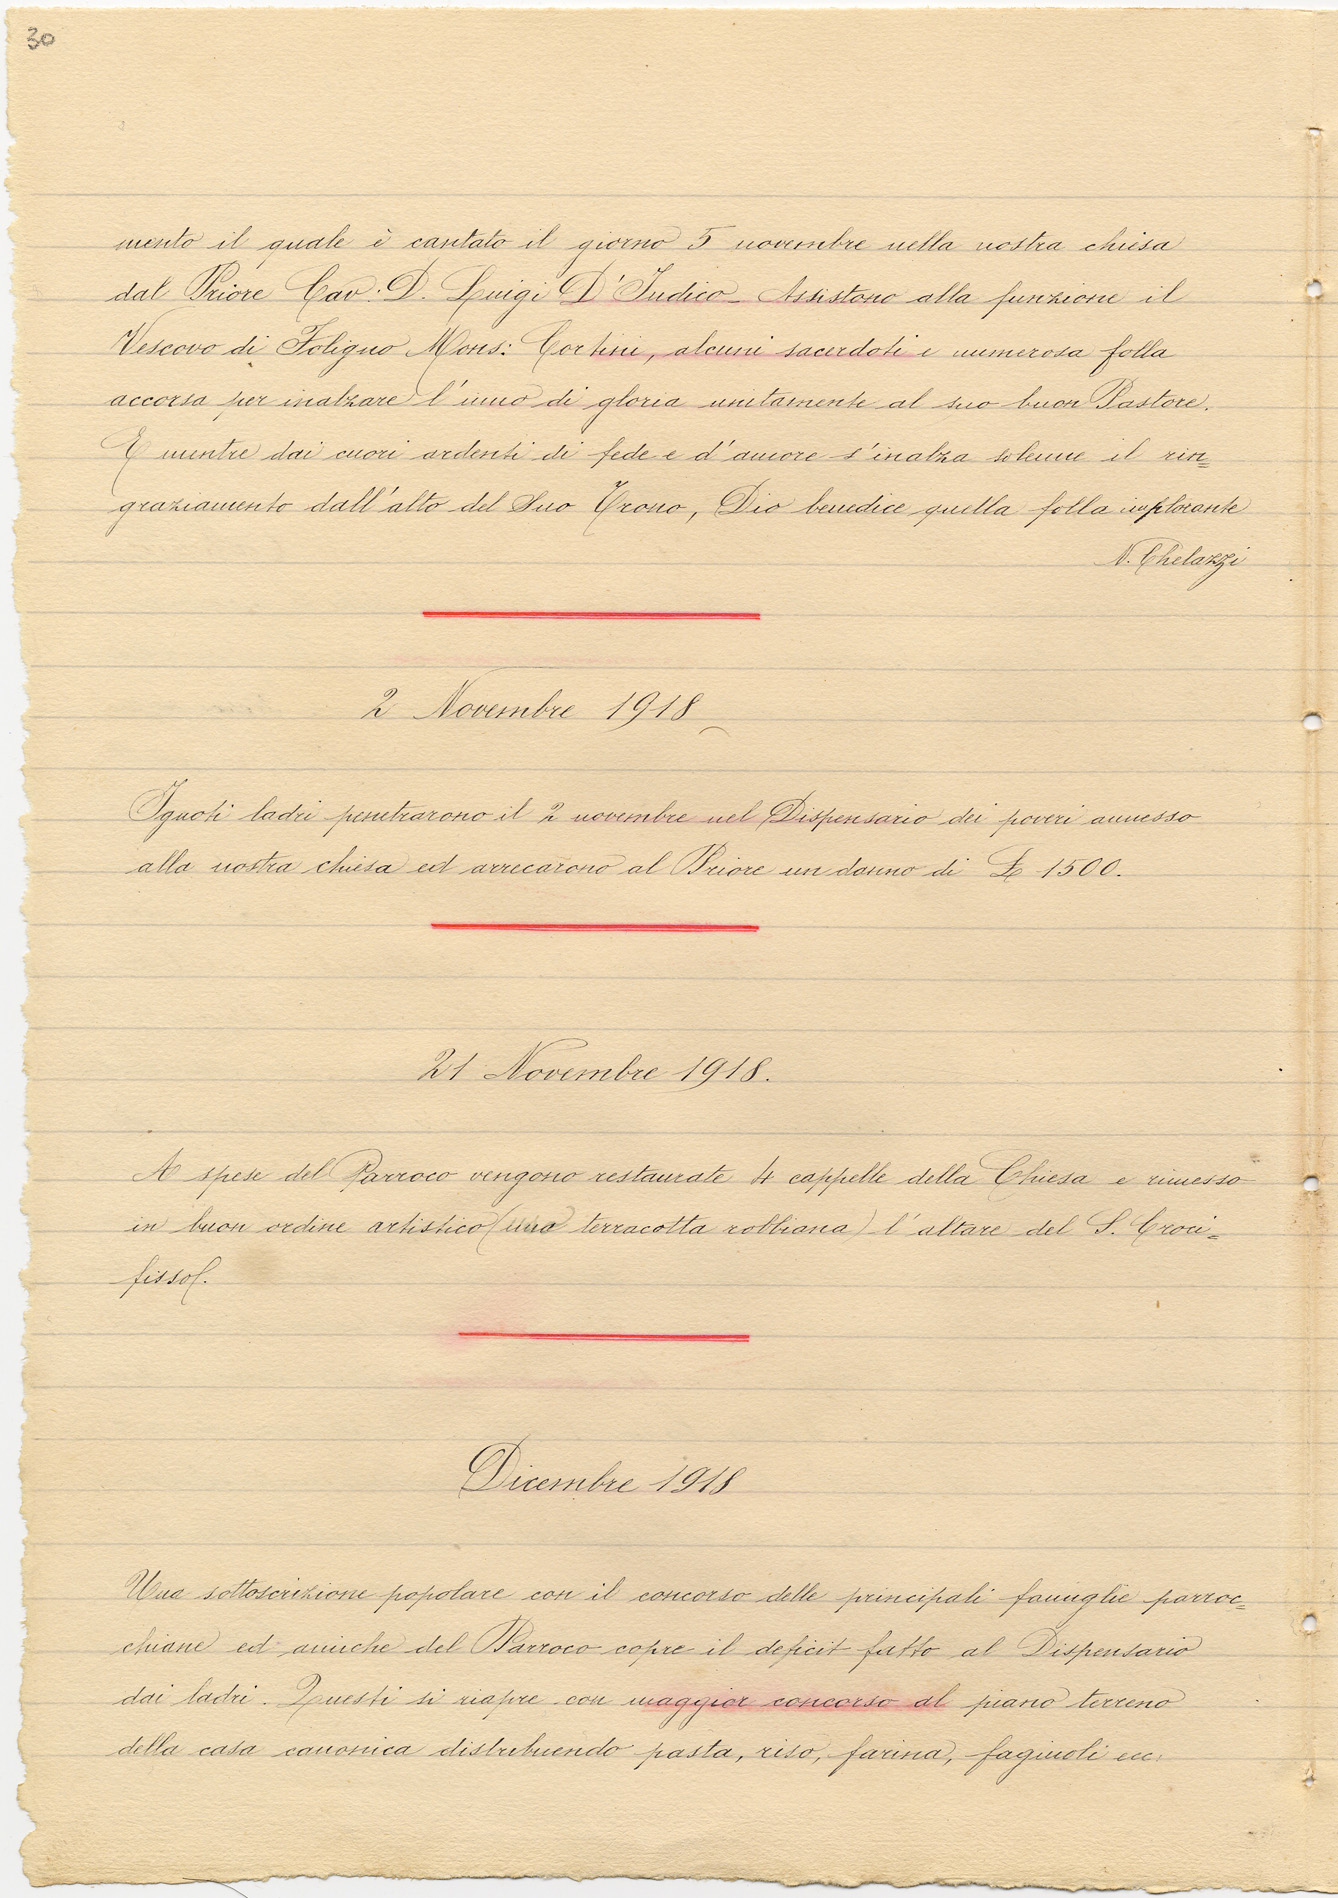 30
mento il quale è cantato il giorno 5 novembre nella nostra chiesa
dal Priore Cav: D. Luigi D'Indico_ Assistono alla funzione il
Vescovo di Foligno Mons: Corbini, alcuni sacerdoti e numerosa folla
accorsa per inalzare l'inno di gloria unitamente al suo buon Pastore.
E mentre dai cuori ardenti di fede e d'amore s'inalza solenne il rin=
graziamento dall'alto del Suo Trono, Dio benedice quella folla implorante
N. Chelazzi
2 Novembre 1918
Ignoti ladri penetrarono il 2 novembre nel Dispensario dei poveri annesso
alla nostra chiesa ed arrecarono al Priore un danno di £ 1500.
21 Novembre 1918.
A spese del Parroco vengono restaurate 4 cappelle della Chiesa e rimesso
in buon ordine artistico (una terracotta robbiana) l'altare del S. Croci=
fisso.
Dicembre 1918
Una sottoscrizione popolare con il concorso delle principali famiglie parroc=
chiane ed amiche del Parroco copre il deficit fatto al Dispensario
dai ladri. Questi si riapre con maggior concorso al piano terreno
della casa canonica distribuendo pasta, riso, farina, fagiuoli ecc.